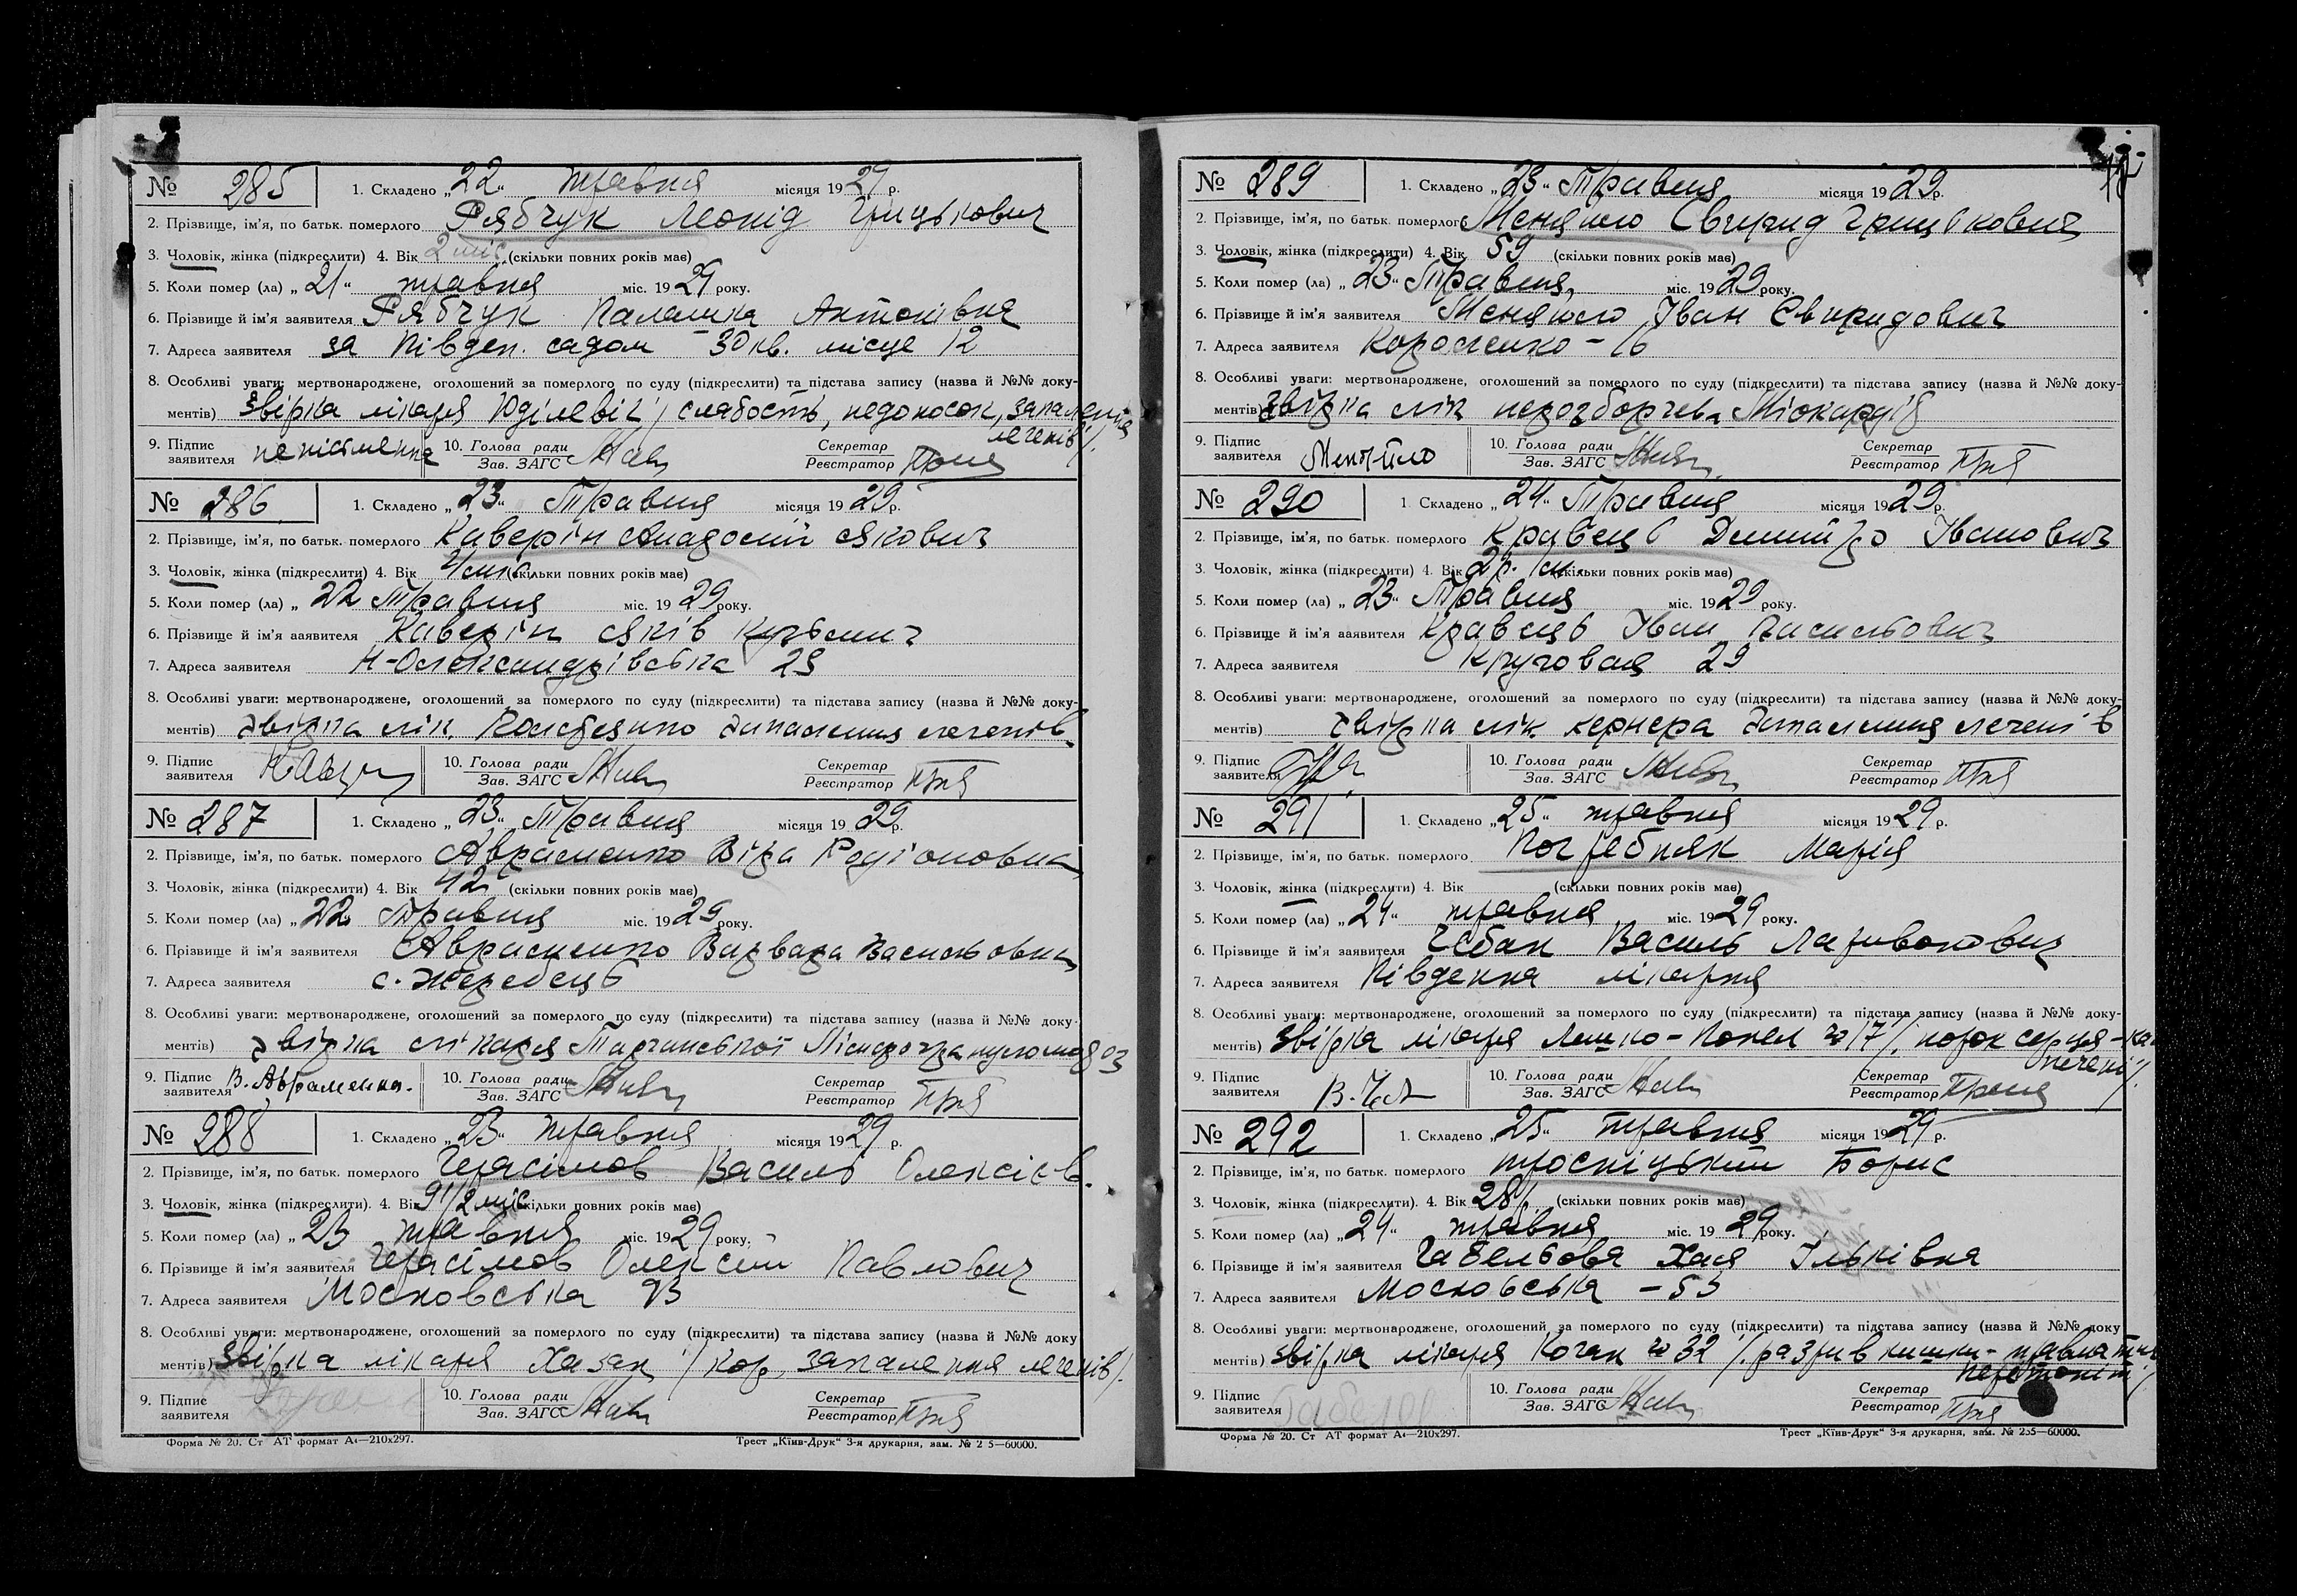 № 285 1. Складено „22“ травня місяця 1929 р.
2. Прізвище, ім'я, по батьк. померлого Рябчук Леонід Грицькович
3. Чоловік, жінка (підкреслити) 4. Вік 2 міс. (скільки повних років має)
5. Коли помер (ла) „21“ травня міс. 1929 року.
6. Прізвище й ім'я заявителя Рябчук Палашка Антонівна
7. Адреса заявителя за Півден. садом 30 кв. місце 12
8. Особливі уваги: мертвонароджене, оголошений за померлого по суду (підкреслити) та підстава запису (назва й №№ доку-
ментів) звірка лікаря слабость, недоносок, запалення
легенів
9. Підпис заявителя неписьменна 10. Голова ради Зав. ЗАГС Секретар Реєстратор
№ 286 1. Складено „23“ Травня місяця 1929 р.
2. Прізвище, ім'я, по батьк. померлого Каверін Якович
3. Чоловік, жінка (підкреслити) 4. Вік (скільки повних років має)
5. Коли помер (ла) „22 Травня міс. 1929 року.
6. Прізвище й ім'я заявителя Каверін Яків Кузьмич
7. Адреса заявителя Н-Олександрівська 29
8. Особливі уваги: мертвонароджене, оголошений за померлого по суду (підкреслити) та підстава запису (назва й №№ доку-
ментів) звірка лік. запалення легенів
9. Підпис заявителя 10. Голова ради Зав. ЗАГС Секретар Реєстратор
№ 287 1. Складено „23“ Травня місяця 1929 р.
2. Прізвище, ім'я, по батьк. померлого Авраменко Віра Родіоновна
3. Чоловік, жінка (підкреслити) 4. Вік 42 (скільки повних років має)
5. Коли помер (ла) „22 Травня міс. 1929 року.
6. Прізвище й ім'я заявителя Авраменко Варвара Васильовна
7. Адреса заявителя с. Жеребець
8. Особливі уваги: мертвонароджене, оголошений за померлого по суду (підкреслити) та підстава запису (назва й №№ доку-
ментів) звірка лікаря
9. Підпис заявителя В. Авраменка. 10. Голова ради Зав. ЗАГС Секретар Реєстратор
№ 288 1. Складено „23“ травня місяця 1929 р.
2. Прізвище, ім'я, по батьк. померлого Герасімов Василь Олексієв.
3. Чоловік, жінка (підкреслити). 4. Вік 9 1/2 міс (скільки повних років має)
5. Коли помер (ла) „23 травня міс. 1929 року.
6. Прізвище й ім'я заявителя Герасімов Олексій Павлович
7. Адреса заявителя Московська 93
8. Особливі уваги: мертвонароджене, оголошений за померлого по суду (підкреслити) та підстава запису (назва й №№ доку
ментів) звірка лікаря Хазан / кор, запалення легенів/.
9. Підпис заявителя 10. Голова ради Зав. ЗАГС Секретар Реєстратор
Форма № 20. Ст АТ формат А4—210x297. Трест „Київ-Друк“ 3-я друкарня, зам. № 2 5—60000.
№ 289 1. Складено „23“ Травня місяця 1929 р.
2. Прізвище, ім'я, по батьк. померлого Меняйло Свирид Грицькович
3. Чоловік, жінка (підкреслити) 4. Вік 59 (скільки повних років має)
5. Коли помер (ла) „23“ Травня, міс. 1929 року.
6. Прізвище й ім'я заявителя Меняйло Іван Свиридович
7. Адреса заявителя Короленко - 16
8. Особливі уваги: мертвонароджене, оголошений за померлого по суду (підкреслити) та підстава запису (назва й №№ доку-
ментів) звірка лік нерозборчева Міокардіт
9. Підпис заявителя Меняйло 10. Голова ради Зав. ЗАГС Секретар Реєстратор
№ 290 1. Складено „24“ Травня місяця 1929 р.
2. Прізвище, ім'я, по батьк. померлого Кравець Дмитро Іванович
3. Чоловік, жінка (підкреслити) 4. Вік 2 р. 1 м. (скільки повних років має)
5. Коли помер (ла) „23“ Травня міс. 1929 року.
6. Прізвище й ім'я заявителя Кравець Іван Васильович
7. Адреса заявителя Круговая 29
8. Особливі уваги: мертвонароджене, оголошений за померлого по суду (підкреслити) та підстава запису (назва й №№ доку-
ментів) звірка лік. Кернера запалення легенів
9. Підпис заявителя 10. Голова ради Зав. ЗАГС Секретар Реєстратор
№ 291 1. Складено „25“ травня місяця 1929 р.
2. Прізвище, ім'я, по батьк. померлого Погребняк Марія
3. Чоловік, жінка (підкреслити) 4. Вік (скільки повних років має)
5. Коли помер (ла) „24“ травня міс. 1929 року.
6. Прізвище й ім'я заявителя Чебан Василь
7. Адреса заявителя Південна лікарня
8. Особливі уваги: мертвонароджене, оголошений за померлого по суду (підкреслити) та підстава запису (назва й №№ доку-
ментів) звірка лікаря Ляшко-Попел № 17 /. порок серця -
печені/.
9. Підпис заявителя 10. Голова ради Зав. ЗАГС Секретар Реєстратор
№ 292 1. Складено „25“ травня місяця 1929 р.
2. Прізвище, ім'я, по батьк. померлого Троспіцький Борис
3. Чоловік, жінка (підкреслити) 4. Вік 28 р. (скільки повних років має)
5. Коли помер (ла) „24“ травня міс. 1929 року.
6. Прізвище й ім'я заявителя Габельова Хая Ільківна
7. Адреса заявителя Московська - 53
8. Особливі уваги: мертвонароджене, оголошений за померлого по суду (підкреслити) та підстава запису (назва й №№ доку
ментів) звірка лікаря Коган № 32 /. разрив кишки-
перетоніт/.
9. Підпис заявителя 10. Голова ради Зав. ЗАГС Секретар Реєстратор
Форма № 20. Ст АТ формат А4—210x297. Трест „Київ-Друк“ 3-я друкарня, зам. № 235—60000.